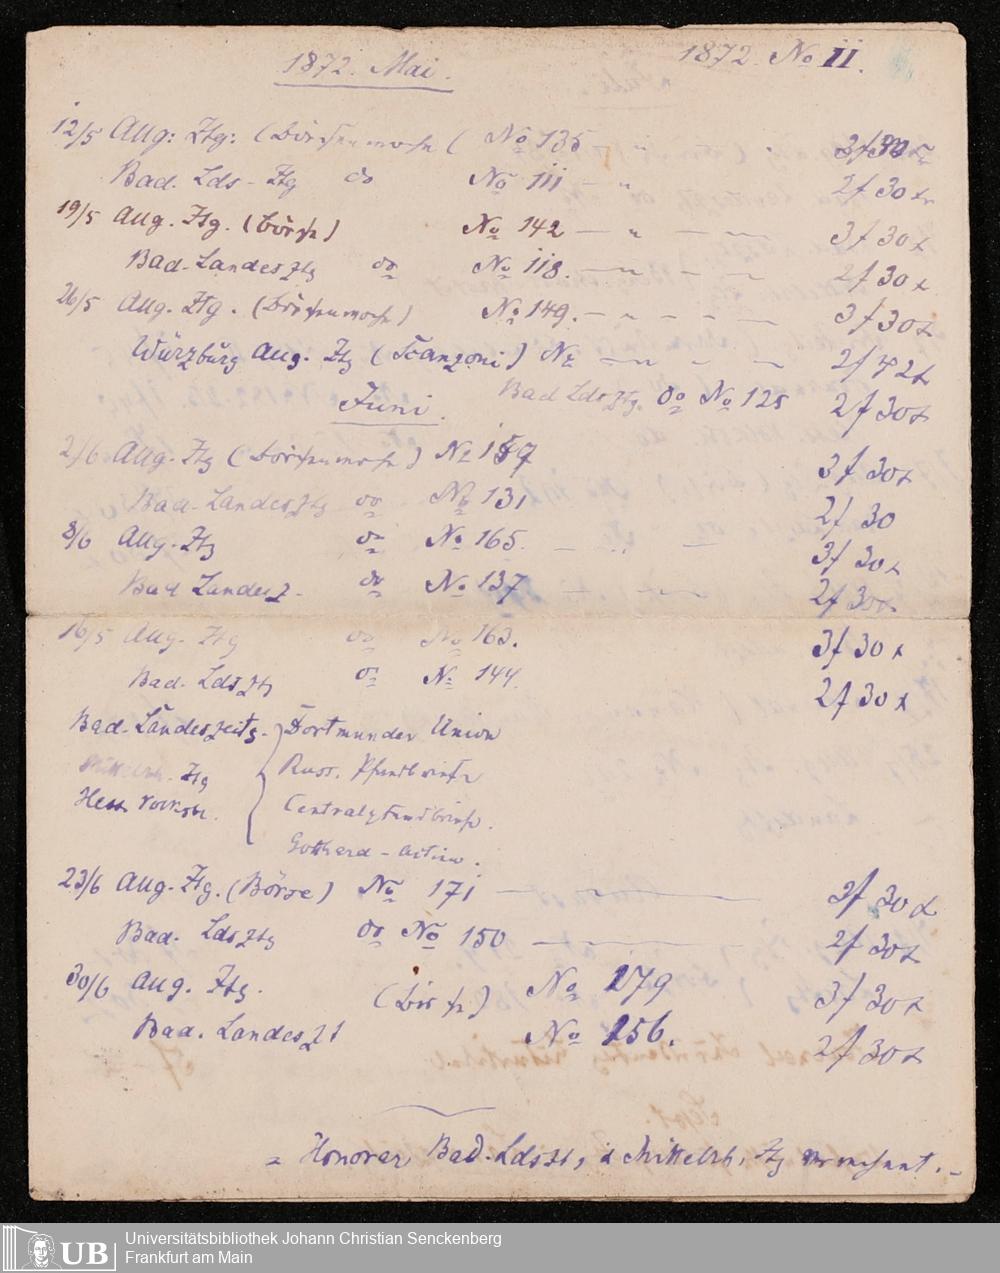 1872. Mai.
1872. No II.
12/5 Allg: Ztg: (Börsenwoche ( No 135 " 3f 30x
Bad. Lds-Ztg do No 111 — " 2f 30x
19/5 Allg. Ztg. (Börse) No 142 — " — — 3f 30x
Bad-Landesztg do No 118. — " — — 2f 30x
26/5 Allg. Ztg. (Börsenwoche) No 149. — " — — — 3f 30x
Würzburg Allg. Ztg (Scanzoni) No — " — — 2f 42x
Bad Ldsztg. do No 125 2f 30x
Juni.
2/6 Allg. Ztg (Börsenwoche) No 157 3f 30x
Bad-Landesztg do No 131 2f 30
8/6 Allg. Ztg do No 165. — " — 3f 30x
Bad Landesz. do No 137 — — 2f 30x
16/5 Allg. Ztg do No 163. 3f 30x
Bad. Ldsztg do No 144. 2f 30x
Bad-Landeszeitg. Dortmunder Union
Mittelrh. Ztg Russ. Pfandbriefe
Hess Volksbl. Centralpfandbriefe.
Gotthard-Actien.
23/6 Allg. Ztg. (Börse) No 171 — 3f 30x
Bad. Ldsztg do No 150 — 2f 30x
30/6 Allg. Ztg. (Börse) No 179 3f 30x
Bad. Landeszt No 156. 2f 30x
= Honorar Bad. Ldszt, & Mittelrh, Ztg verrechnet. –
UB
Universitätsbibliothek Johann Christian Senckenberg
Frankfurt am Main